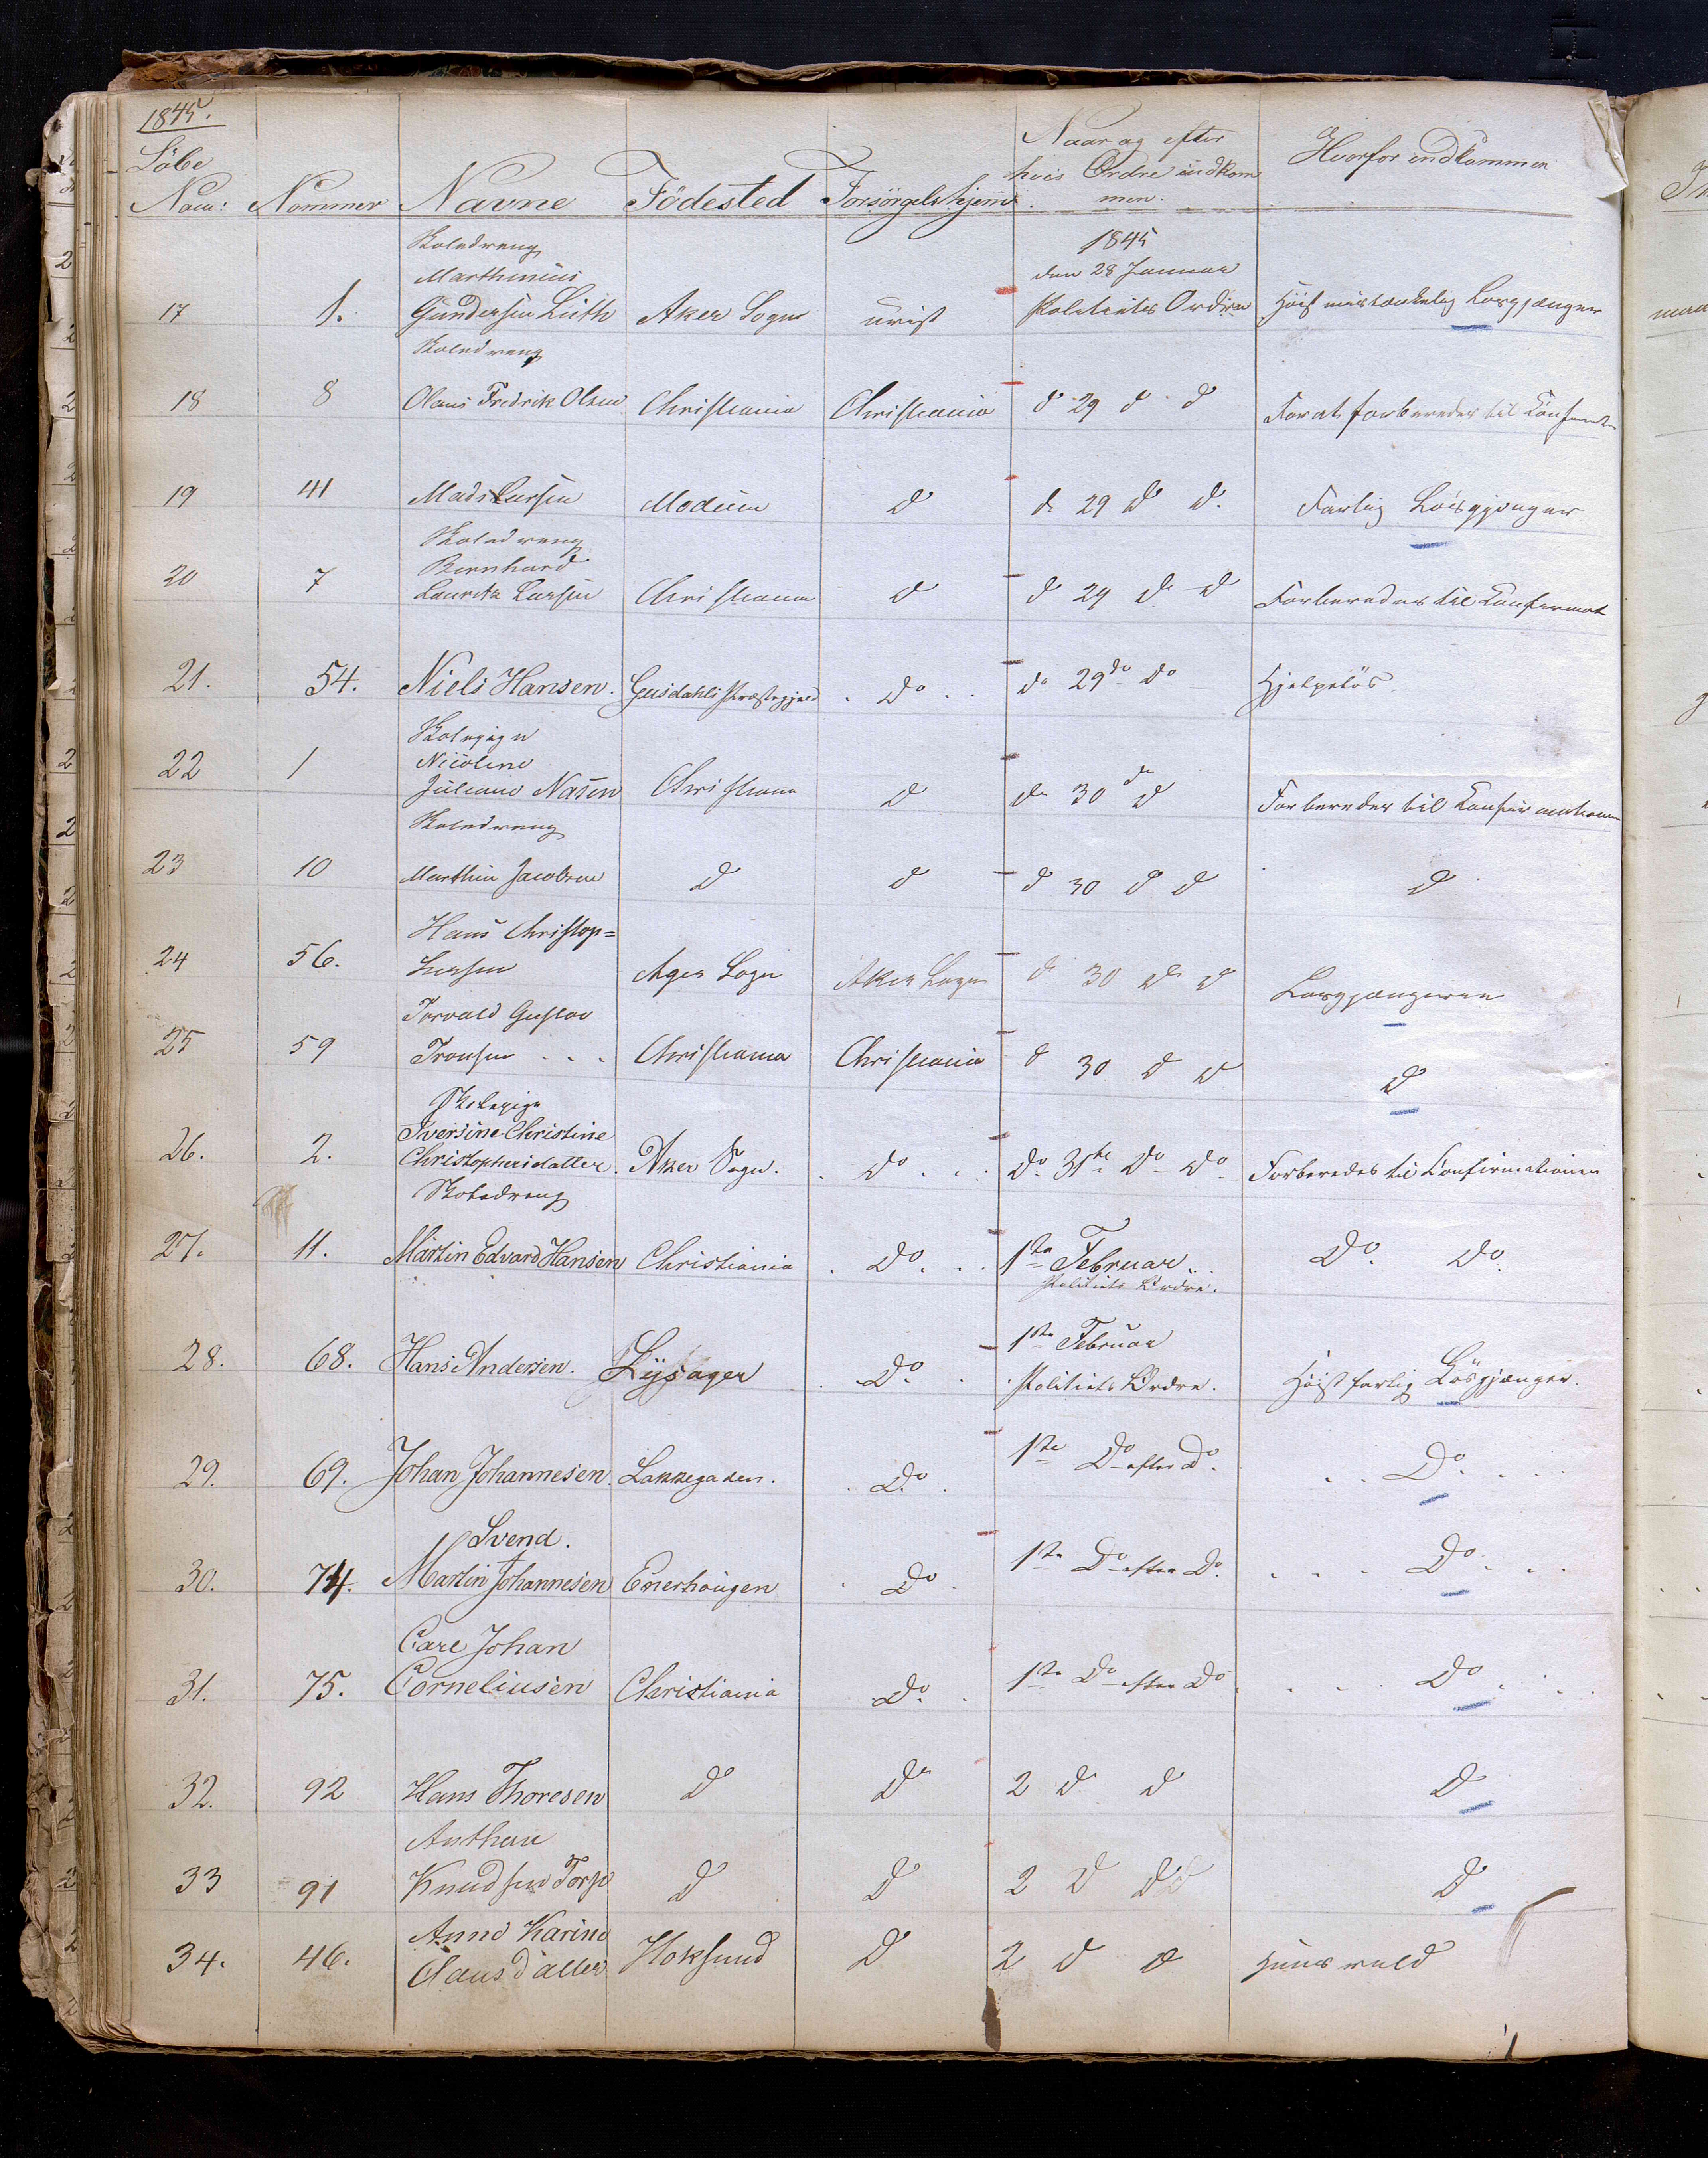 1845.
Löbe Num: Nommer Navne Födested Forsörgelsehjem Naar og efter hvis Ordre indkommen. Hvorfor indkommen
1845
Skoledreng
Marthinius den 28 Januar
17 1. Gundersen Lüth Aker Sogn uvist Politiets Ordre Höist mistænkelig Losgjænger
Skoledreng
18 8 Olaus Fredrik Olsen Christiania Christiania d 29 d d For at forberedes til Konf
19 41 Mads Larsen Modum d d 29 d d. Farlig Løsgjænger
Skoledreng
Bernhard
20 7 Lauritz Larsen Christiania d d 29 d d Forberedes til Konfirmat
21. 54. Niels Hansen. Præstegjeld do do 29 do do Hjelpelös.
Skolepige
Nicoline
22 1 Juliane Christiania d d 30 d d Forberedes til Konfirmationen
Skoledreng
23 10 Marthin Jacobsen d d d 30 d d d
Hans Christop=
24 56. Larsen Ager Sogn Aker Sogn d 30 d d Losgjængeren
Torvald Gustav
25 59 Tronsen Christiania Christiania d 30 d d d
Skolepige
Iversine Christine
26. 2. Christophersdatter. Aker Sogn. do do 31te do do Forberedes til Konfirmationen
Skoledreng
27. 11. Martin Edvard Hansen Christiania do. 1ste Februar. Do. Do.
Politiets Ordre.
1ste Februar
28. 68. Hans Andersen. Lysager Do. Politiets Ordre. Höist farlig Lösgjænger.
29. 69. Johan Johannesen. Lakkegaden. Do. 1ste Do efter Do. Do.
Svend.
30. 74. Martin Johannesen Enerhaugen Do 1ste Do efter Do. Do
Carl Johan
31. 75. Corneliusen Christiania Do. 1ste Do efter Do Do
32. 92 Hans Thoresen d d 2 d d d
Anthon
33 91 Knudsen Torp d d 2 d d d
Anne Karine
34. 46. Clausdatter Hoksund d 2 d d Huusvild